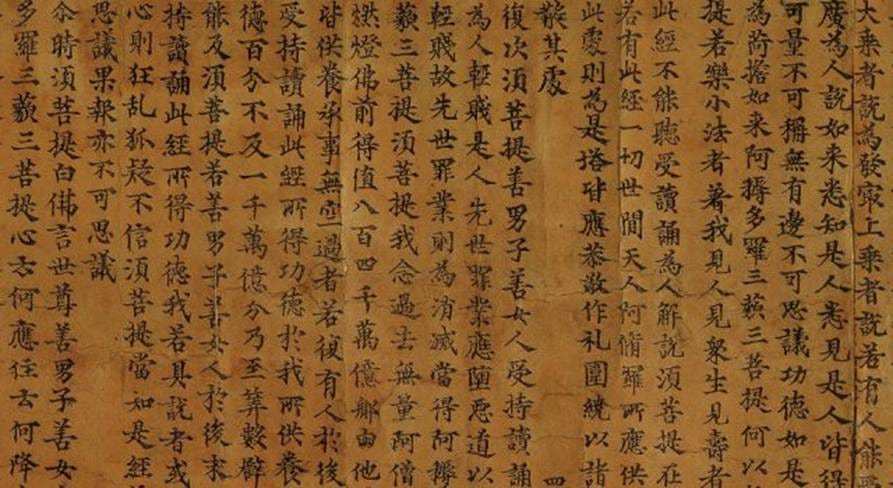 大乘者說為發冣上乘者說若有人能受
廣為人說如来悉知是人悉見是人皆得
可量不可稱無有邊不可思議功德如是
為荷擔如来阿耨多羅三藐三菩提何以
提若樂小法者著我見人見衆生見壽者
此經不能聽受讀誦為人解說須菩提在
若有此經一切世間天人阿脩羅所應供
此處則為是塔皆應恭敬作礼圍繞以諸
散其處
復次須菩提善男子善女人受持讀誦
為人輕賤是人先世罪業應墮惡道以
輕賤故先世罪業則為消滅當得阿耨
藐三菩提須菩提我念過去無量阿僧
燃燈佛前得值八百四千萬億那由他
皆供養承事無空過者若復有人於後
受持讀誦此經所得功德於我所供養
德百分不及一千萬億分乃至筭數譬
能及須菩提若善男子善女人於後末
持讀誦此經所得功德我若具說者或
心則狂乱狐疑不信須菩提當知是經
思議果報亦不可思議
尒時須菩提白佛言世尊善男子善女
多羅三藐三菩提心云何應住云何降